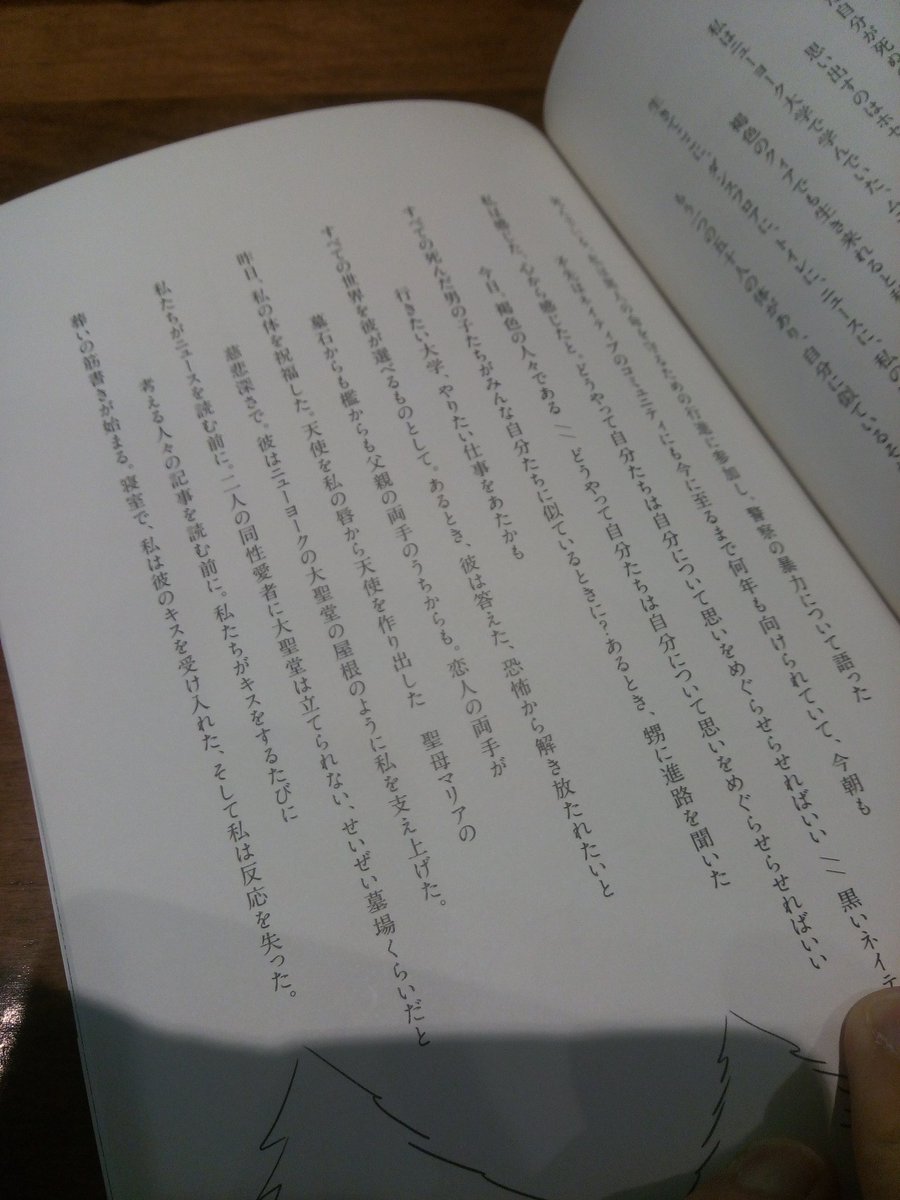 自分が死ぬ
思い出すのは
私はニューヨーク大学で学んでいた、
褐色のクィアでも生き来れると
ここに、ダンスフロアに、トイレに、ニュースに、私の
もう一つの五十人の体があり、自分に似ているそ
ための行進に参加し、警察の暴力について語った
ネイティブのコミュニティにも今に至るまで何年も向けられていて、今朝も
私は感じた、心から感じたと。どうやって自分たちは自分について思いをめぐらせらせればいい // 黒いネイテ
今日、褐色の人々である // どうやって自分たちは自分について思いをめぐらせらせればいい
すべての死んだ男の子たちがみんな自分たちに似ているときに？あるとき、甥に進路を聞いた
行きたい大学、やりたい仕事をあたかも
すべての世界を彼が選べるものとして。あるとき、彼は答えた、恐怖から解き放たれたいと
墓石からも檻からも父親の両手のうちからも。恋人の両手が
昨日、私の体を祝福した。天使を私の唇から天使を作り出した　聖母マリアの
慈悲深さで。彼はニューヨークの大聖堂の屋根のように私を支え上げた。
私たちがニュースを読む前に。二人の同性愛者に大聖堂は立てられない、せいぜい墓場くらいだと
考える人々の記事を読む前に。私たちがキスをするたびに
葬いの筋書きが始まる。寝室で、私は彼のキスを受け入れた、そして私は反応を失った。